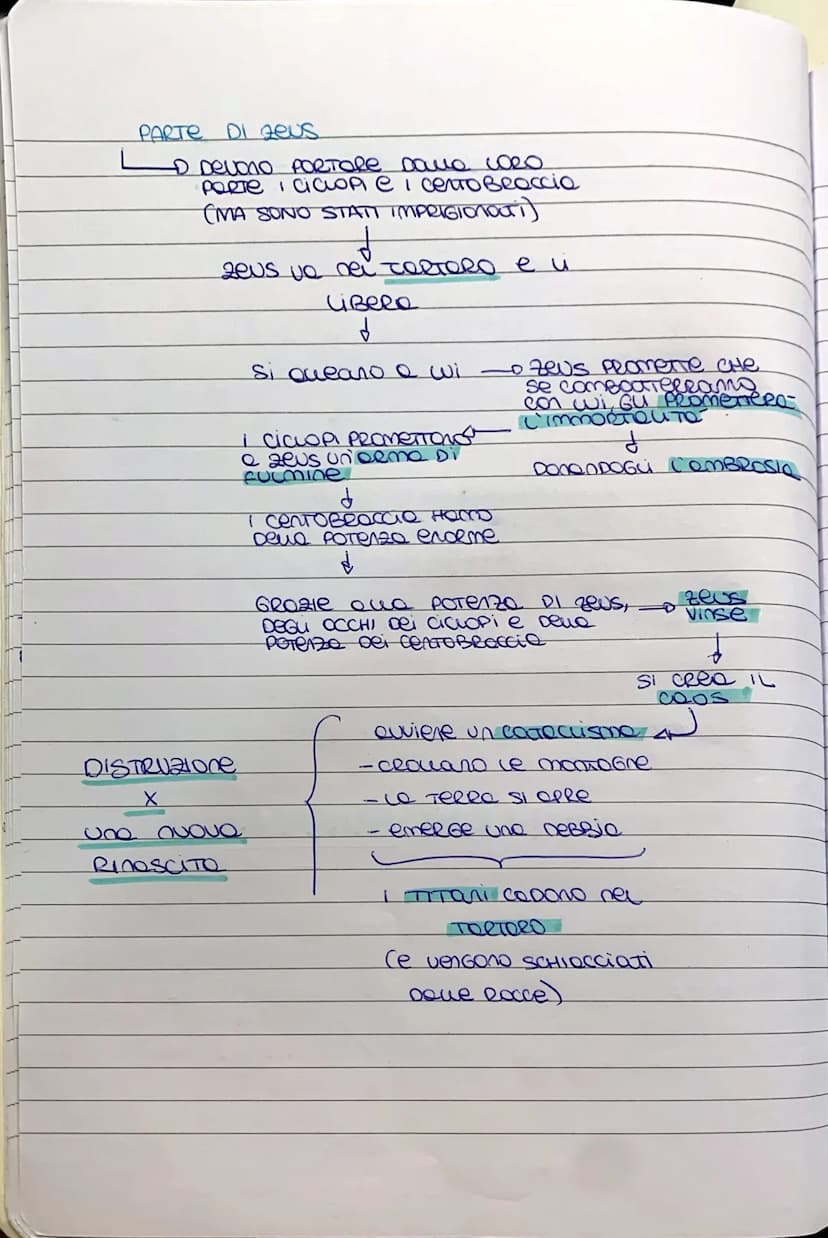 PARTE DI ZEUS
DEVONO PORTARE DALLA LORO
PARTE I CICLOPI E I CENTOBRACCIA
(MA SONO STATI IMPRIGIONATI)
ZEUS VA NEL TARTARO E LI
LIBERA
SI ALLEANO A LUI
ZEUS PROMETTE CHE
SE COMBATTERRANNO
CON LUI, GLI PROMETTERÀ
L'IMMORTALITÀ
DONANDOGLI L'AMBROSIA
I CICLOPI PROMETTONO
A ZEUS UN'ARMA DI
FULMINE
I CENTOBRACCIA HANNO
DELLA POTENZA ENORME
GRAZIE ALLA POTENZA DI ZEUS,
DEGLI OCCHI DEI CICLOPI E DELLA
POTENZA DEI CENTOBRACCIA
ZEUS
VINSE
SI CREA IL
CAOS
AVVIENE UN CATACLISMA
- CROLLANO LE MONTAGNE
- LA TERRA SI APRE
- EMERGE UNA NEBBIA
DISTRUZIONE
X
UNA NUOVA
RINASCITA
I TITANI CADONO NEL
TARTARO
(E VENGONO SCHIACCIATI
DALLE ROCCE)